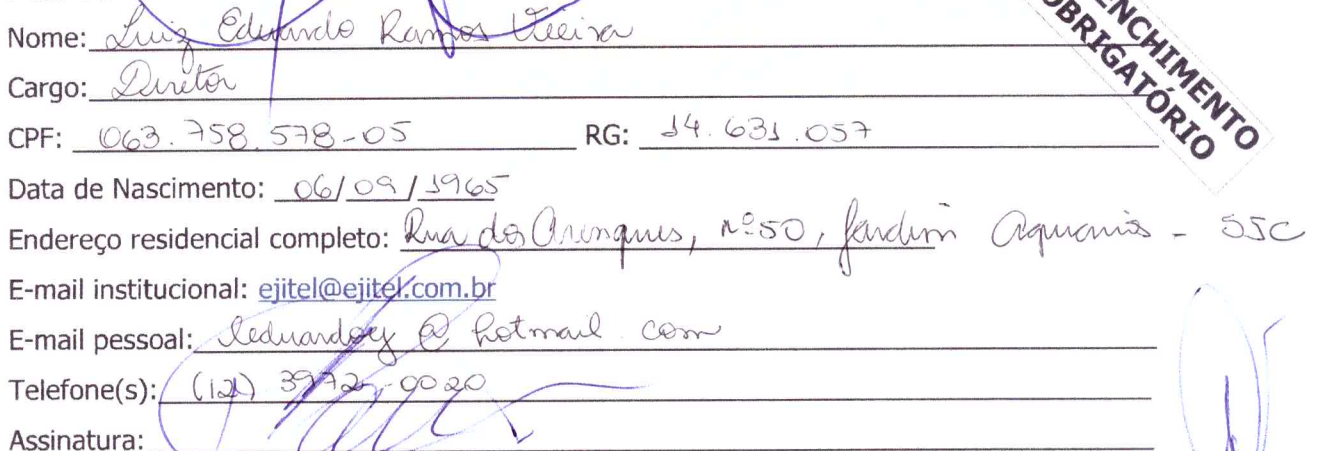 Nome: Luiz Eduardo Ramos Vieira
ENCHIMENTO
OBRIGATÓRIO
Cargo: Diretor
CPF: 063.758.578-05 RG: 14.631.057
Data de Nascimento: 06/09/1965
Endereço residencial completo: Rua dos Arenques, nº50, Jardim Aquarius - SJC
E-mail institucional: ejitel@ejitel.com.br
E-mail pessoal: @hotmail.com
Telefone(s): (12) 3972-0020
Assinatura: